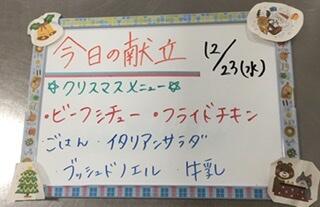 今日の献立 12/23(水)
☆クリスマスメニュー☆
・ビーフシチュー ・フライドチキン
ごはん ・イタリアンサラダ
・ブッシュドノエル ・牛乳